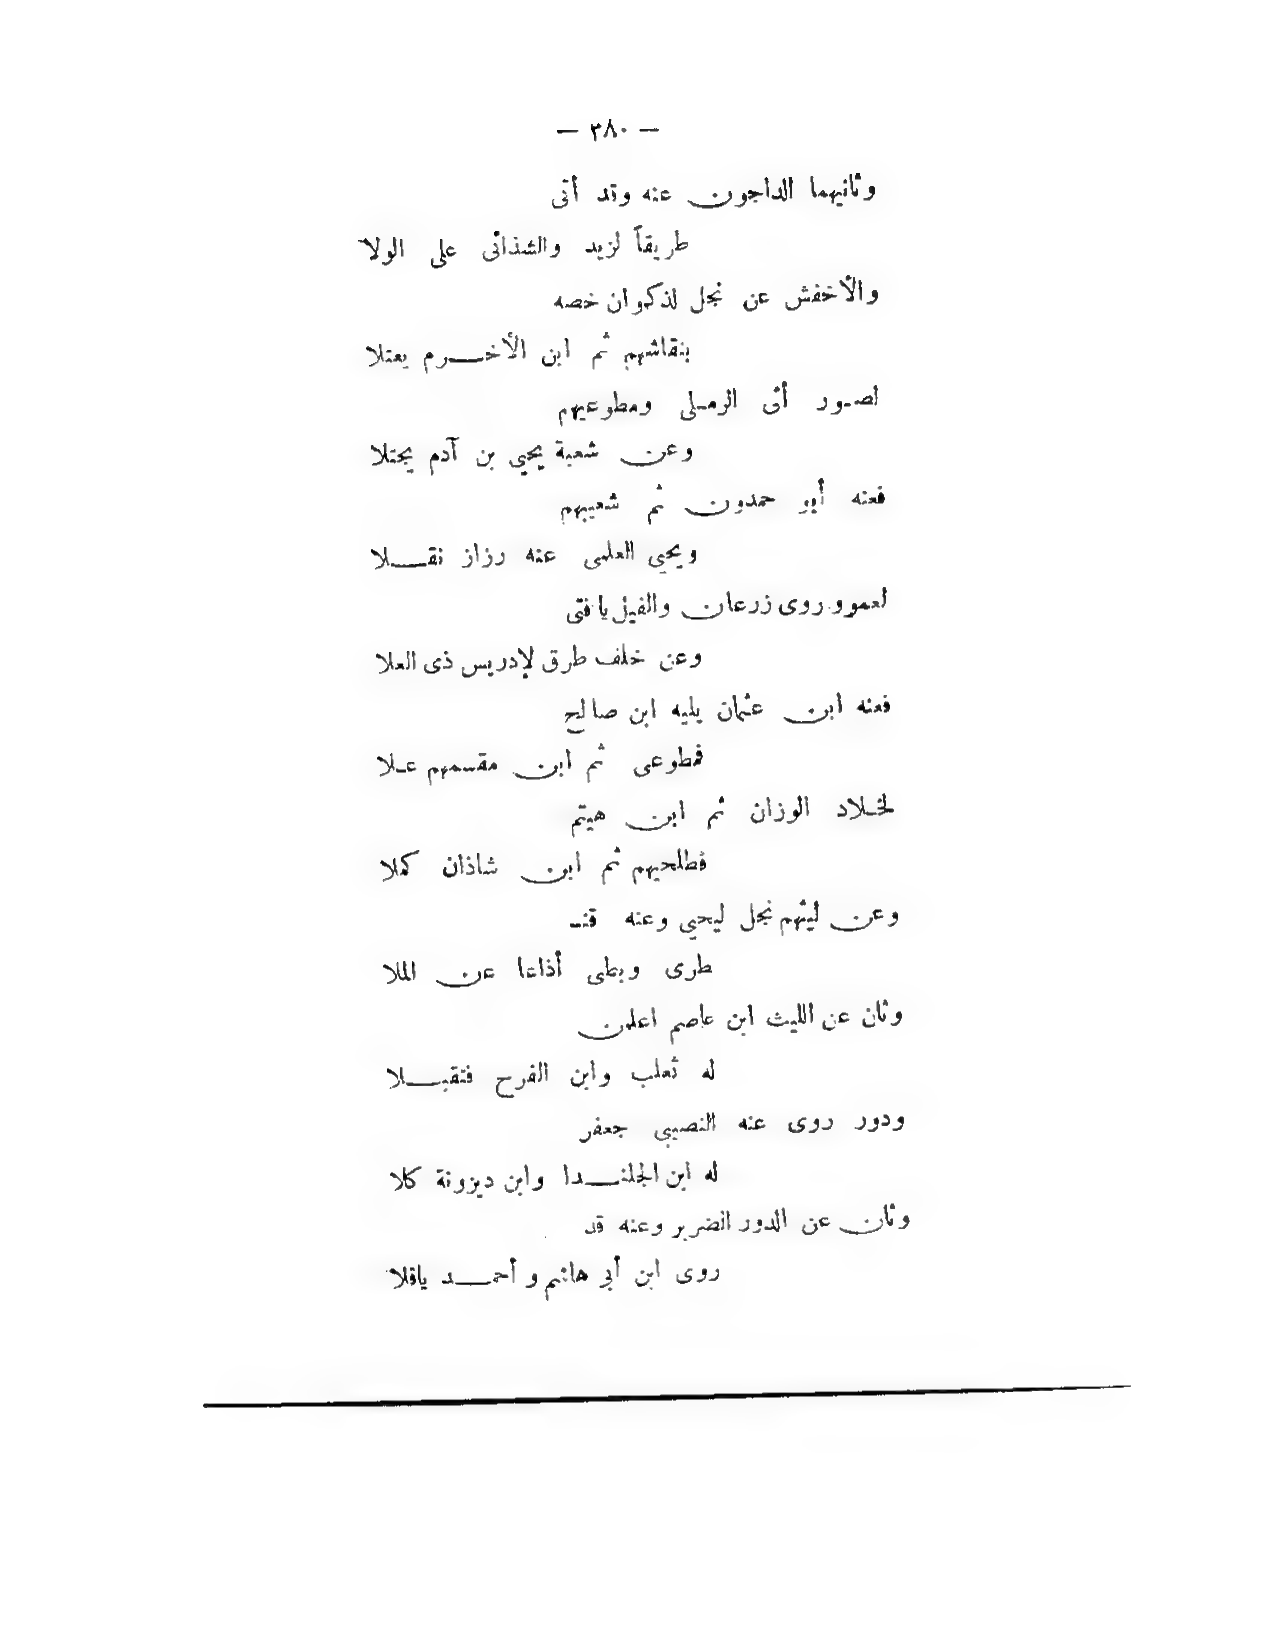 — ٣٨٠ —
وثانيهما الداجون عنه وقد أتى
طريقاً لزيد والشذائى على الولا
والأخفش عن نجل لذكوان خصه
بنقاشهم ثم ابن الأخرم يعتلا
لصور أتى الرملى ومطوعيهم
وعن شعبة يحيى بن آدم يجتلا
فعنه أبو حمدون ثم شعيبهم
ويحيى العلمى عنه رزاز نقلا
لعمرو روى زرعان والفيل يا فتى
وعن خلف طرق لإدريس ذى العلا
فعنه ابن عثمان يليه ابن صالح
فمطوعى ثم ابن مقسمهم علا
لخلاد الوزان ثم ابن هيثم
فطلحيهم ثم ابن شاذان كملا
وعن ليثهم نجل ليحيى وعنه قنـ
طرى وبطى أذاعا عن الملا
وثان عن الليث ابن عاصم اعلمن
له ثعلب وابن الفرح فتقبلا
ودور روى عنه النصيبى جعفر
له ابن الجلندا وابن ديزونة كلا
وثان عن الدور الضرير وعنه قد
روى ابن أبى هاشم وأحمد ياقلا